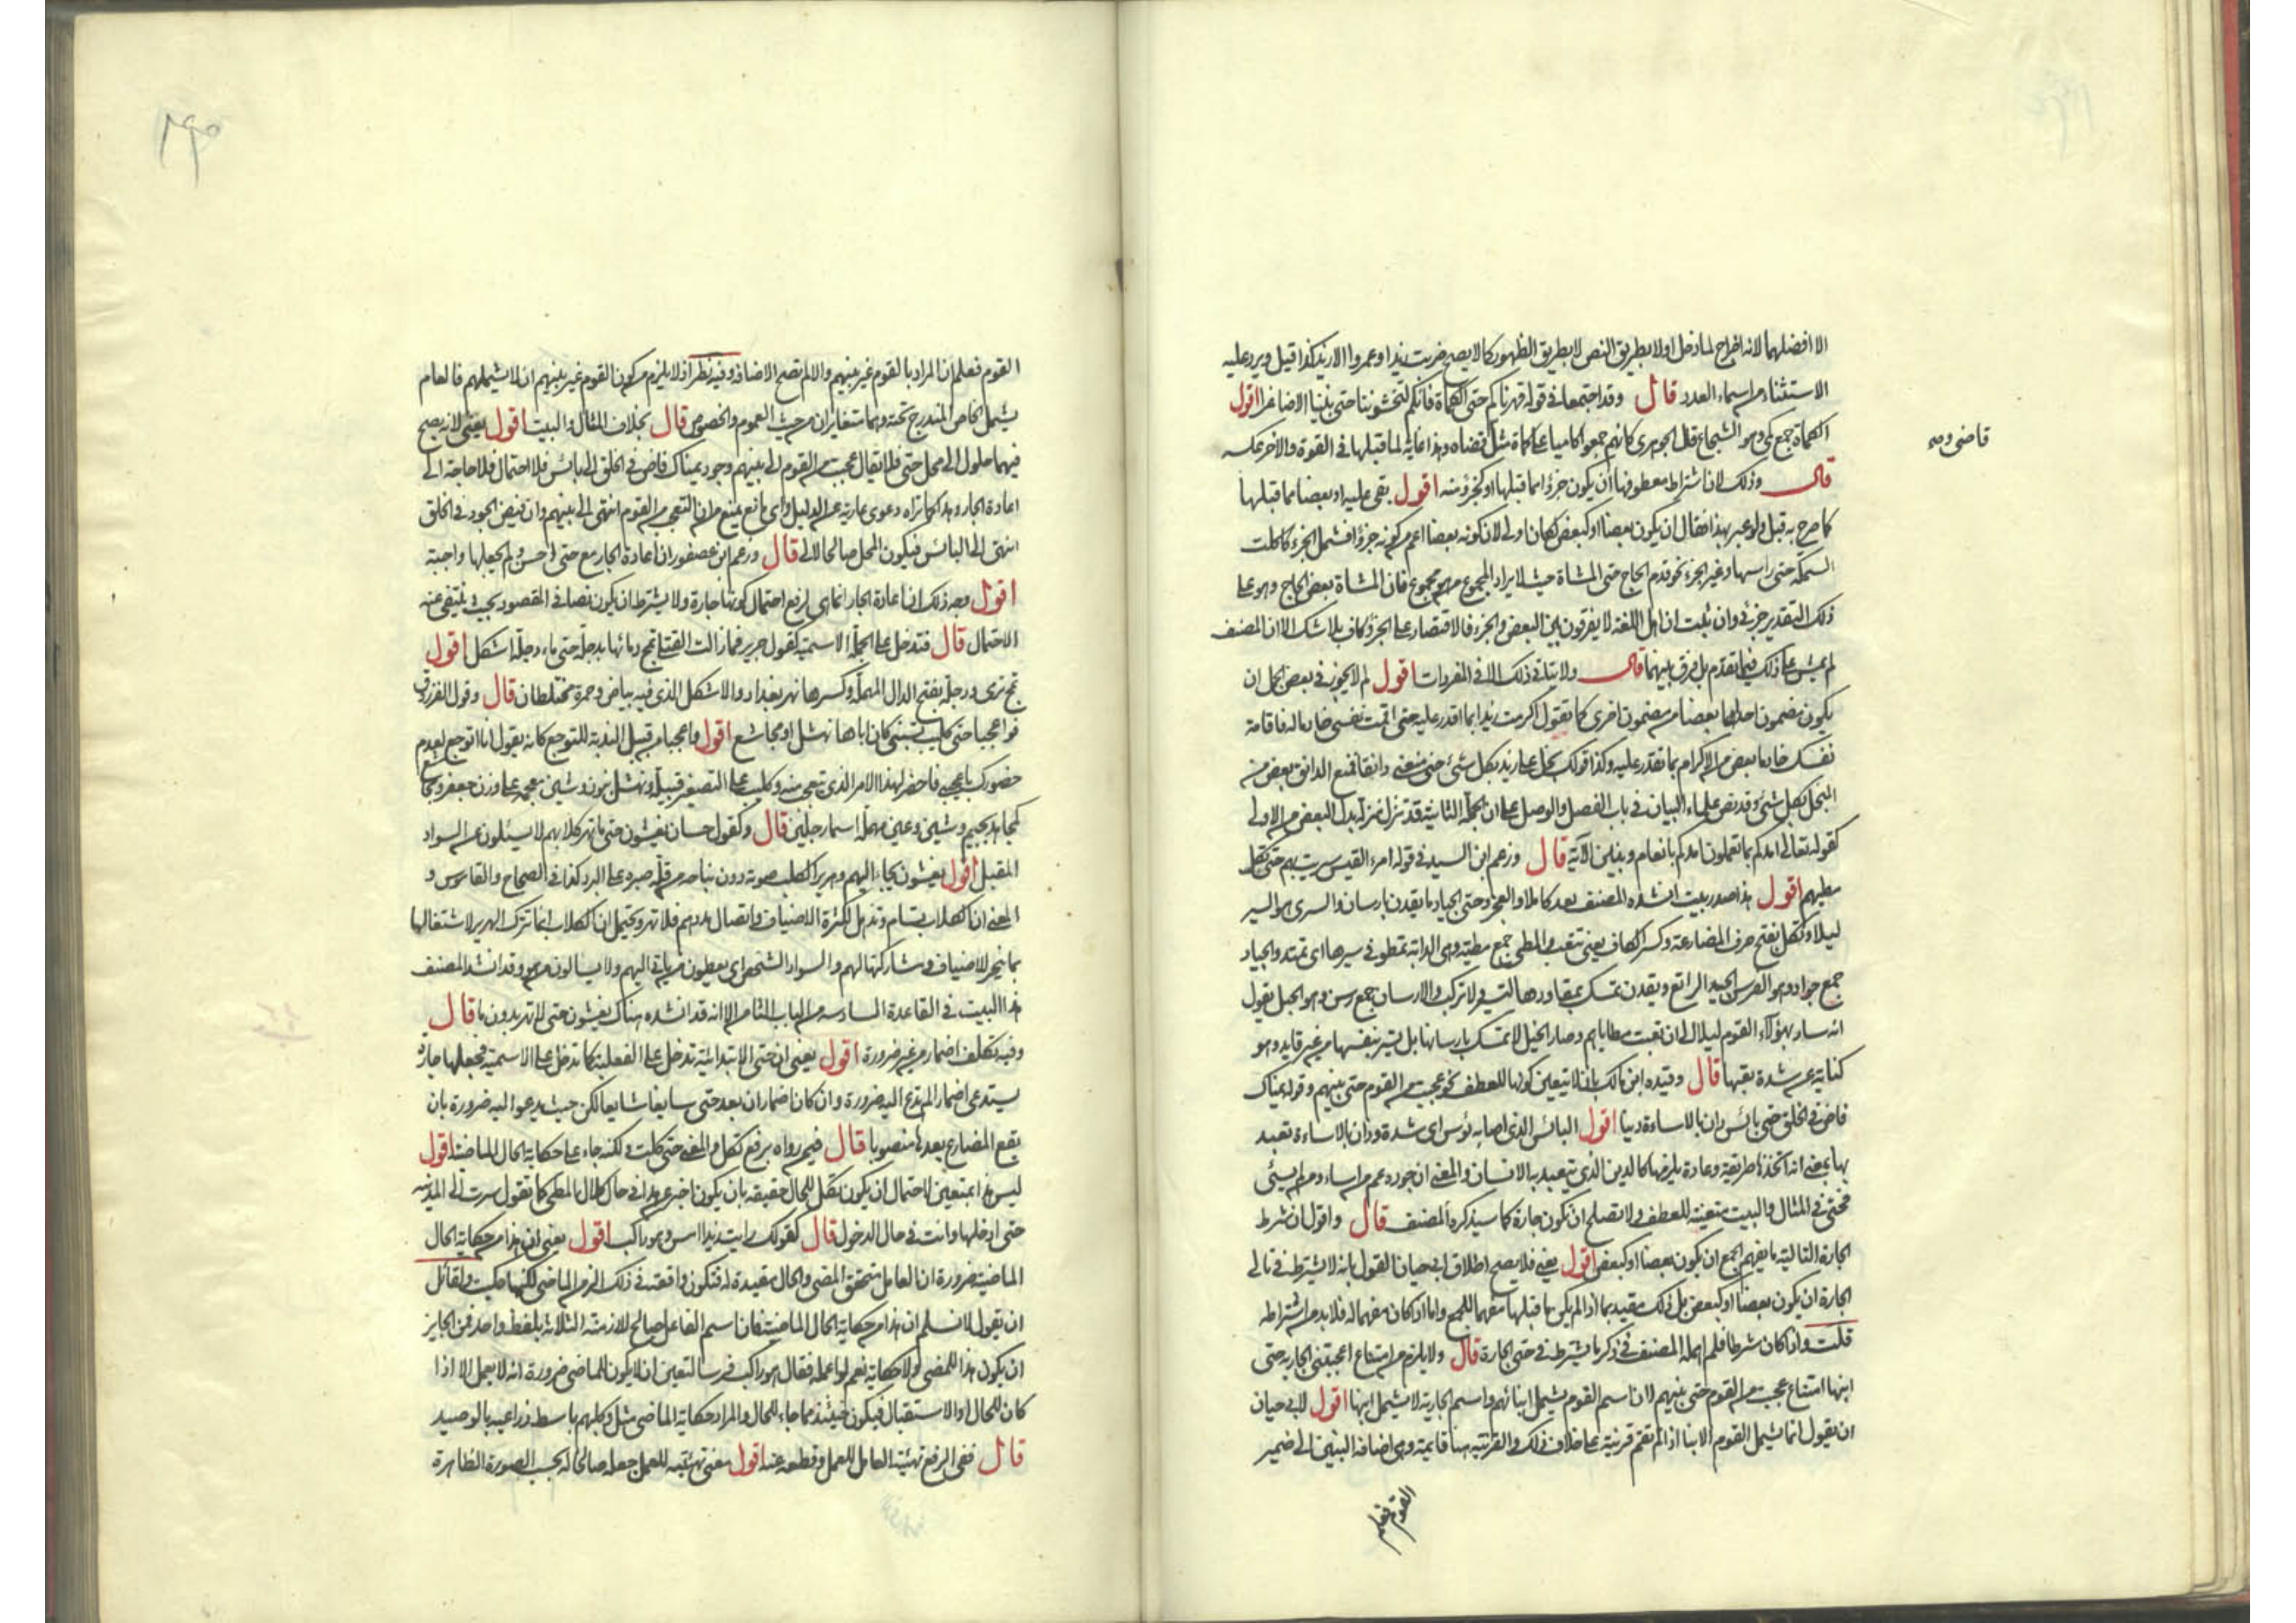 الا افضلهما لانه اخراج لما دخل اولا بطريق النص لا بطريق الظهور كما لا يصح ضربت زيدا وعمروا الا زيد كذا قيل ويرد عليه
الاستثناء من اسماء العدد قال وقد اجتمعا في قوله قهرناكم حتى الكماة فانكم لتخشوننا حتى بنينا الاصاغرا اقول
الكماة جمع كمي وهو الشجاع قال الجوهري كانهم جمعوا كاميا على كماة مثل قضاة وهذا غاية لما قبلها في القوة والاخر عكسه
قاضي وصه
قال وذلك لان اشتراط معطوفها ان يكون جزؤا مما قبلها او كجزؤ منه اقول بقى عليه او بعضا مما قبلها
كما صرح به قبل ولو عبر بهذا فقال ان يكون بعضا او كبعض لكان اولى لان كونه بعضا اعم من كونه جزؤا فشمل الجزء كاكلت
السمكة حتى راسها وغير الجزء نحو قدم الحاج حتى المشاة حيث لا يراد المجموع من هو مجموع فان المشاة بعض الحاج وهو على
ذلك التقدير جزؤ وان ثبت ان اهل اللغة لا يفرقون بين البعض والجزء فالاقتصار على الجزؤ كاف بلا شك الا ان المصنف
لم يمش على ذلك فيما تقدم بل فرق بينهما قال ولا يتاتى ذلك الا في المفردات اقول لم لا يجوز في بعض الجمل ان
يكون مضمون احداها بعضا من مضمون اخرى كما تقول اكرمت زيدا بما اقدر عليه حتى اقمت نفسي خادما له فاقامة
نفسك خادما بعض من الاكرام بما تقدر عليه وكذا قولك بخل على زيد بكل شئ حتى منعني دانقا فمنع الدانق بعض من
البخل بكل شئ وقد نص علماء البيان في باب الفصل والوصل على ان الجملة الثانية قد تنزل منزلة بدل البعض من الاولى
كقوله تعالى امدكم بما تعلمون امدكم بانعام وبنين الآية قال وزعم ابن السيد في قوله امرء القيس سريت بهم حتى تكل
مطيهم اقول هذا صدر بيت انشده المصنف بعد كاملا والعجز وحتى الجياد ما يقدن بارسان والسرى هو السير
ليلا وتكل بفتح حرف المضارعة وكسر الكاف يعني تتعب والمطي جمع مطية وهي الدابة تمطو في سيرها اي تمتد والجياد
جمع جواد وهو الفرس الجيد الرائع ويقدن تمسك بمقاودها لتسير ولا تركب والارسان جمع رسن وهو الحبل يقول
انه سار بهؤلاء القوم ليلا الى ان تعبت مطاياهم وصار الخيل لا تمسك بارسانها بل تسير بنفسها من غير قايد وهو
كناية عن شدة تعبها قال وقيده ابن مالك بان لا يتعين كونها للعطف نحو عجبت من القوم حتى بنيهم وقوله يمناك
فاض في الخلق حتى بائس دان بالاساءة دينا اقول البائس الذي اصابه بؤس اي شدة ودان بالاساءة تعبد
بها بمعنى انه اتخذها طريقة وعادة يلزمها كالدين الذي يتعبد به الانسان والمعنى ان جوده عم من اساء ومن لم يسئ
فحتى في المثال والبيت متعينة للعطف ولا تصلح ان تكون جارة كما سيذكره المصنف قال واقول ان شرط
الجارة التالية ما يفهم الجمع ان يكون بعضا او كبعض اقول يعني فلا يصح اطلاق ابي حيان القول بانه لا يشترط في تالي
الجارة ان يكون بعضا او كبعض بل ذلك مقيد بما اذا لم يكن ما قبلها مفهما للجمع واما اذا كان مفهما له فلا بد من اشتراطه
قلت واذا كان شرطا فلم اهمله المصنف في ذكر ما يشترط في حتى الجارة قال ولا يلزم من امتناع اعجبتني الجارية حتى
ابنها امتناع عجبت من القوم حتى بنيهم لان اسم القوم يشمل ابنائهم واسم الجارية لا يشمل ابنها اقول لابي حيان
ان يقول انما يشمل القوم الابنا اذا لم تقم قرينة على خلاف ذلك والقرينة هنا قايمة وهي اضافة البنين الى ضمير
القوم فعلم
القوم فعلم ان المراد بالقوم غير بنيهم والا لم تصح الاضافة وفيه نظر اذ لا يلزم من كون القوم غير بنيهم ان لا يشملهم فالعام
يشمل الخاص المندرج تحته وهما متغايران من حيث العموم والخصوص قال بخلاف المثال والبيت اقول يعني لانه يصح
فيهما حلول الى محل حتى فلا يقال عجبت من القوم الى بنيهم وجود يمناك فاض في الخلق الى بائس فلا احتمال فلا حاجة الى
اعادة الجار وهذا كما تراه دعوى عارية عن الدليل واي مانع يمنع من ان التعجب من القوم انتهى الى بنيهم وان فيض الجود في الخلق
انتهى الى البائس فيكون المحل صالحا لالى قال وزعم ابن عصفور ان اعادة الجار مع حتى احسن ولم يجعلها واجبة
اقول وجه ذلك ان اعادة الجار انما هي لرفع احتمال كونها جارة ولا يشترط ان يكون نصا في المقصود بحيث ينتفي عنه
الاحتمال قال فتدخل على الجملة الاسمية كقول جرير فما زالت القتلى تمج دمائها بدجلة حتى ماء دجلة اشكل اقول
تمج ترمى ودجلة بفتح الدال المهملة وكسرها نهر بغداد والاشكل الذي فيه بياض وحمرة مختلطان قال وقول الفرزدق
فواعجبا حتى كليب تسبني كان اباها نهشل او مجاشع اقول واعجبا من قبيل الندبة للتوجع كانه يقول انا اتوجع لعدم
حضورك يا عجبي فاحضر لهذا الامر الذي تعجب منه وكليب على التصغير قبيلة ونهشل بنون وشين معجمة على وزن جعفر ومجاشع
كمجاهد بجيم وشين وعين مهملة اسما رجلين قال وكقول حسان يغشون حتى ما تهر كلابهم لا يسئلون عن السواد
المقبل اقول يغشون يجاء اليهم وهرير الكلب صوته دون نباحه من قلة صبره على البرد كذا في الصحاح والقاموس و
المعنى ان الكلاب تسام وتذهل لكثرة الاضياف واتصال مددهم فلا تهر ويحتمل ان الكلاب انما تركت الهرير لاشتغالها
بما ينحر للاضياف ومشاركتها لهم والسواد الشخص اي يعطون من ياتي اليهم ولا يسالون من هو وقد انشد المصنف
هذا البيت في القاعدة السادسة من الباب الثامن الا انه قد انشده هناك يغشون حتى لا تهر بدون ما قال
وفيه تكلف اضمار من غير ضرورة اقول يعني ان حتى الابتدائية تدخل على الفعلية كما تدخل على الاسمية فجعلها جارة
يستدعي اضمارا لم تدع اليه ضرورة وان كان اضمار ان بعد حتى سايغا شايعا لكن حيث يدعوا اليه ضرورة بان
يقع المضارع بعدها منصوبا قال فيمن رواه برفع تكل والمعنى حتى كلت ولكنه جاء على حكاية الحال الماضية اقول
ليس هذا بمتعين لاحتمال ان يكون تكل للحال حقيقة بان يكون اخبر عن هذا في حال كلال المطي كما تقول سرت الى المدينة
حتى ادخلها وانت في حال الدخول قال كقولك رايت زيدا امس وهو راكب اقول يعني ان هذا من حكاية الحال
الماضية ضرورة ان العامل متحقق المضي والحال مقيدة له فتكون واقعة في ذلك الزمن الماضي لكنها حكيت ولقائل
ان يقول لا نسلم ان هذا من حكاية الحال الماضية فان اسم الفاعل صالح للازمنة الثلاثة بلفظ واحد فمن الجايز
ان يكون هذا للمضي ولا حكاية نعم لو اعمله فقال هو راكب فرسا لتعين ان لا يكون للماضي ضرورة انه لا يعمل الا اذا
كان للحال او الاستقبال فيكون حينئذ مما جاء للحال والمراد حكاية الماضي مثل وكلبهم باسط ذراعيه بالوصيد
قال ففي الرفع تهيئة العامل للعمل وقطعه عنه اقول معنى تهيئته للعمل جعله صالحا له بحسب الصورة الظاهرة
۲۹۰